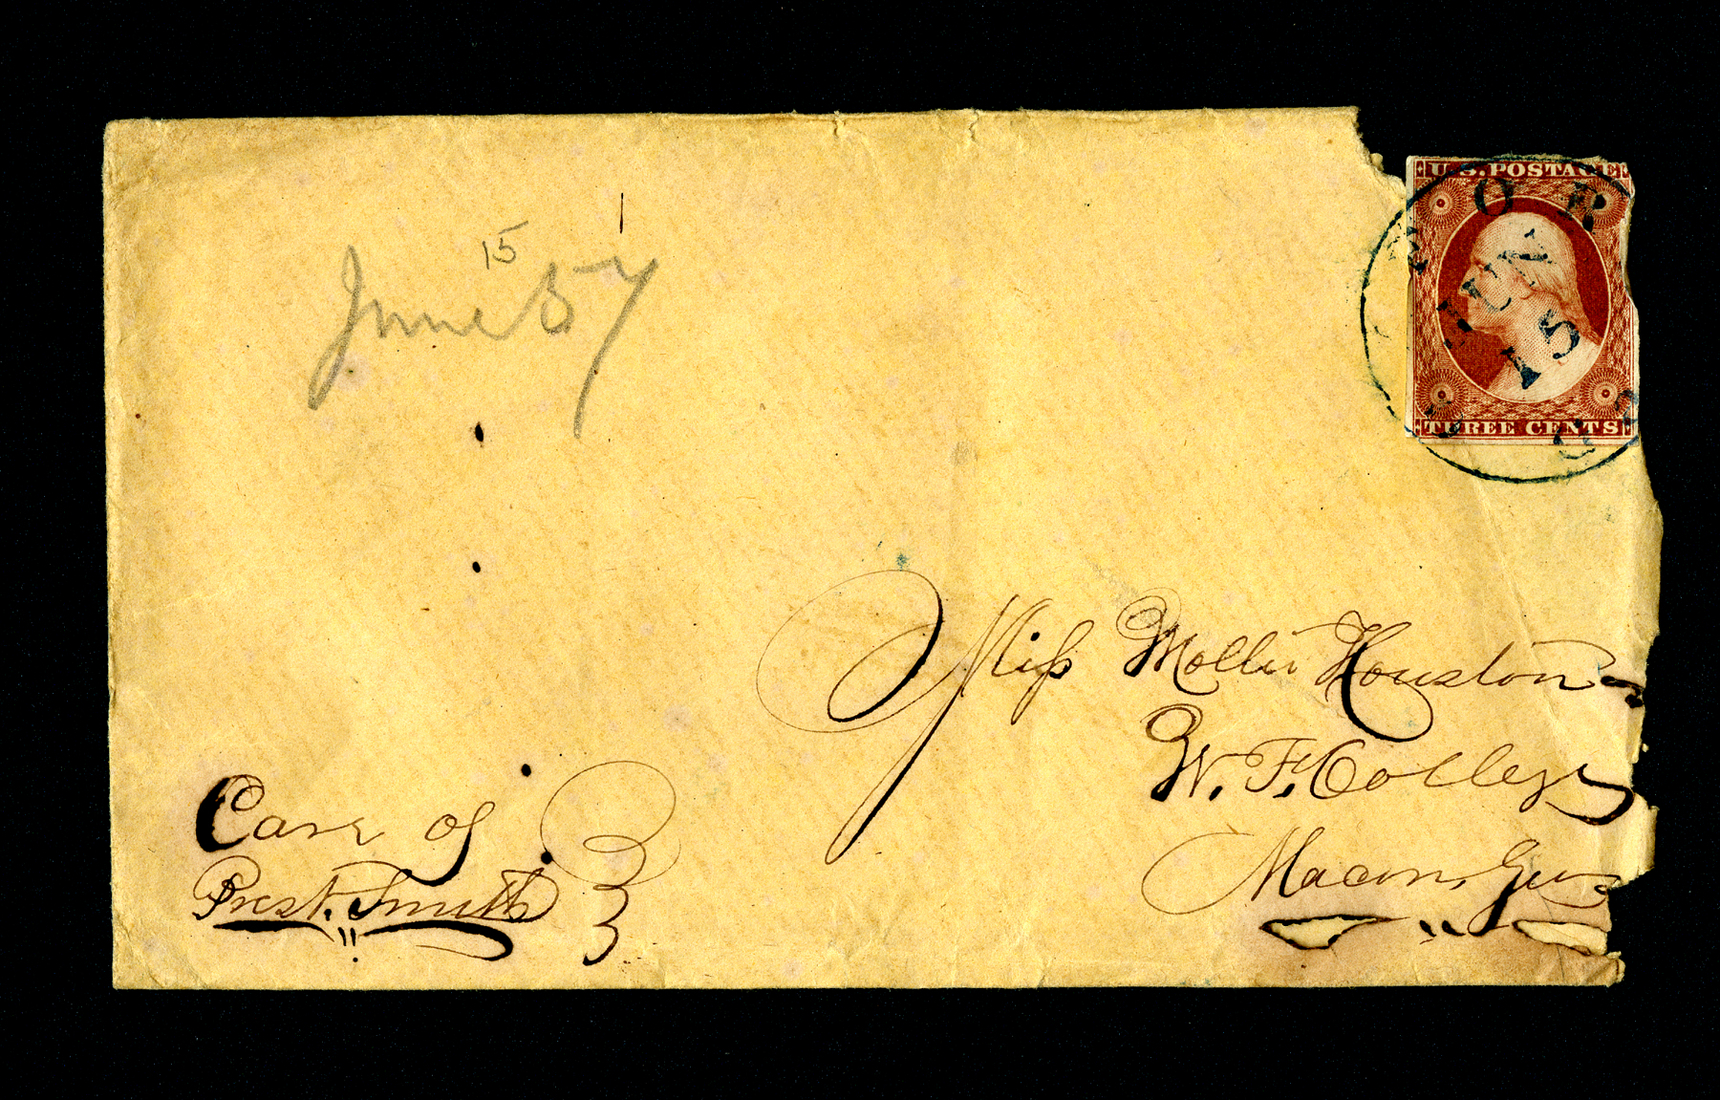 June 15 57
U.S. POSTAGE
JUN
15
THREE CENTS
Miss Mollie Houston
W. F. College
Macon, Geo
Care of
Prest. Smith